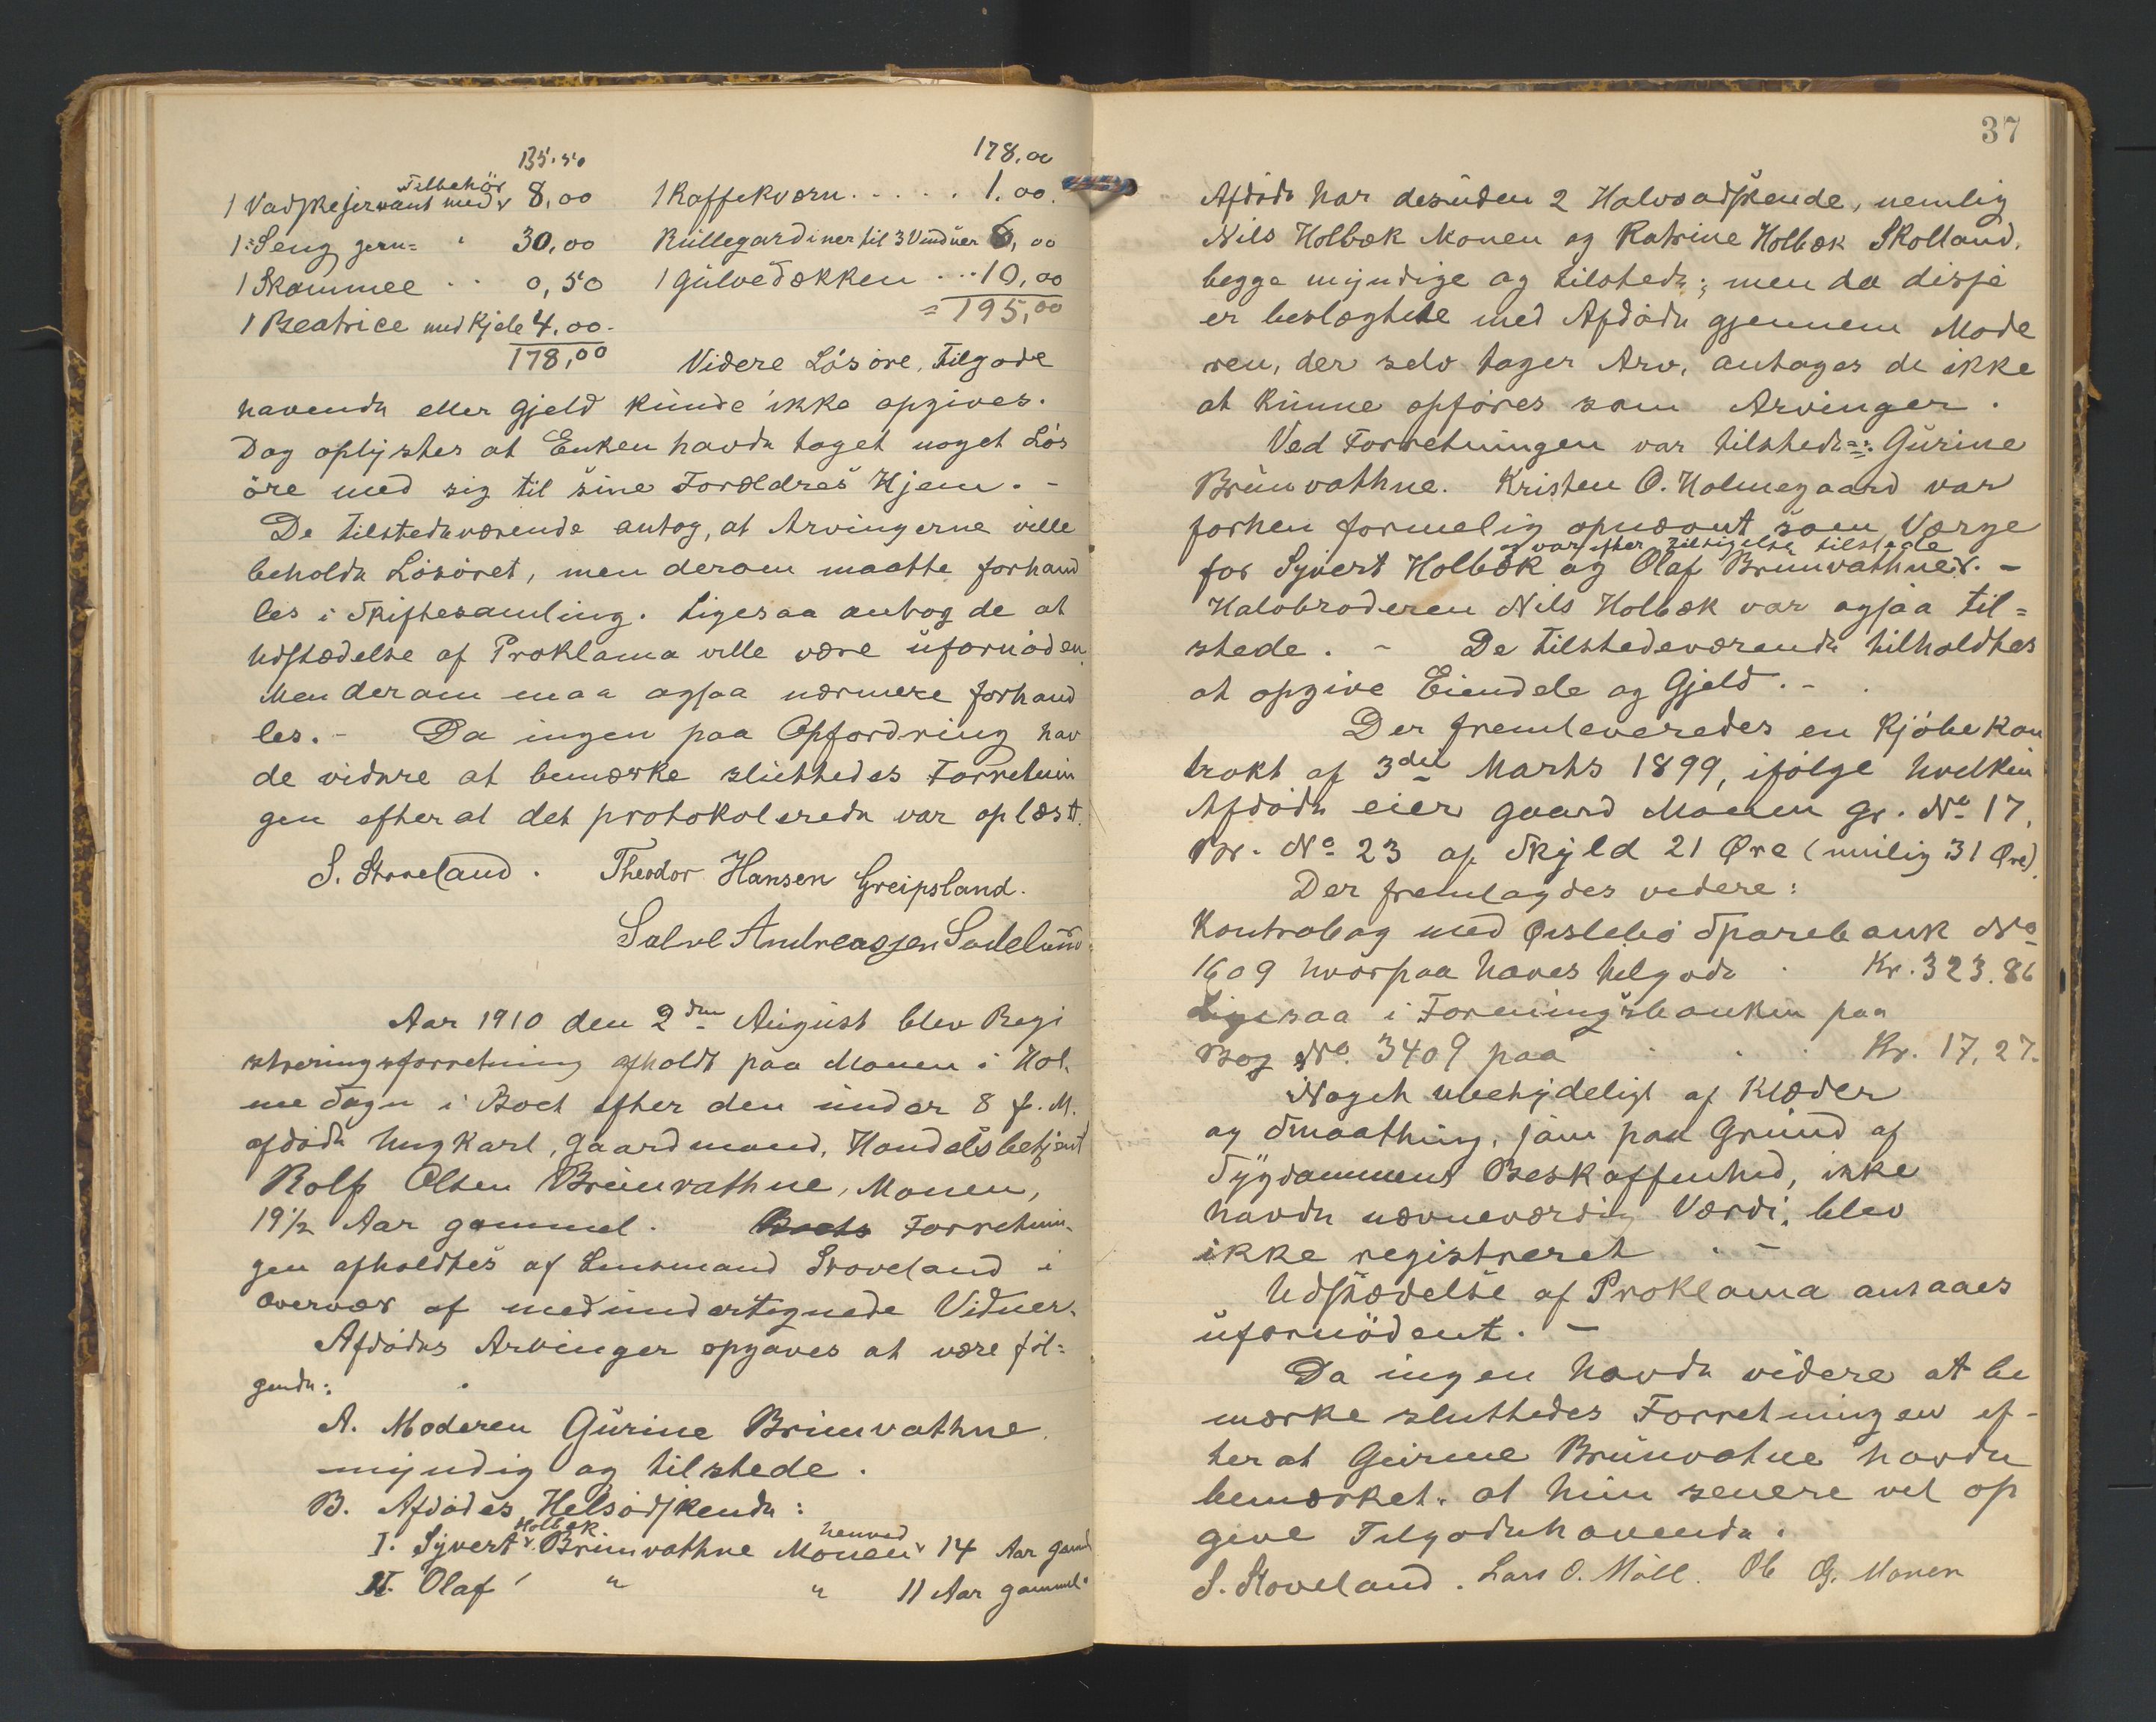 135.50
1 Vadskeservant med Tilbehör 8,00
1 Seng jern= " 30,00
1 Skammel . . 0,50
1 Beatrice med Kjele 4.00.
178,00
178,00
1 Kaffekværn . . . . . 1.00.
Rullegardiner til 3 Vinduer 6,00
1 Gulvedækken . . . 10,00
= 195,00
Videre Lösöre, Tilgode
havende eller Gjeld kunde ikke opgives.
Dog oplystes at Enken havde taget noget Lös
öre med sig til sine Forældres Hjem. -
De tilstedeværende antog, at Arvingerne ville
beholde Lösöret, men derom maatte forhand
les i Skiftesamling. Ligesaa antog de at
Udstædelse af Proklama ville være ufornöden
Men derom maa ogsaa nærmere forhand
les. - Da ingen paa Opfordring hav
de videre at bemærke sluttedes Forretnin
gen efter at det protokolerede var oplæst.
S. Stoveland. Theodor Hansen Greipsland.
Salve Andreassen Sadelund
Aar 1910 den 2den August blev Regi
streringsforretning afholdt paa Monen i Hol
me Sogn i Boet efter den under 8 f. M.
afdöde Ungkarl, Gaardmand, Handelsbetjent
Rolf Olsen Brunvathne, Monen,
19½ Aar gammel. Boets Forretnin
gen afholdtes af Lensmand Stoveland i
Overvær af medundertegnede Vidner.
Afdödes Arvinger opgaves at være föl=
gende:
A. Moderen Gurine Brunvathne
myndig og tilstede.
B. Afdödes Helsödskende:
I. Syvert Holbæk. Brunvathne Monen henved 14 Aar gamel
II. Olaf " " 11 Aar gammel.
37
Afdöde har desuden 2 Halvsödskende, nemlig
Nils Holbæk Monen og Katrine Holbæk Skolland,
begge myndige og tilstede; men da disse
er beslægtede med Afdöde gjennem Mode
ren, der selv tager Arv, antages de ikke
at kunne opföres som Arvinger.
Ved Forretningen var tilstede: Gurine
Brunvathne. Kristen O. Holmegaard var
forhen formelig opnævnt som Værge
og var efter Tilsigelse tilstede
for Syvert Holbæk og Olaf Brunvathne. -
Halvbroderen Nils Holbæk var ogsaa til=
stede. - De tilstedeværende tilholdtes
at opgive Eiendele og Gjeld. -
Der fremleveredes en Kjöbekon
trakt af 3die Marts 1899, ifölge hvilken
Afdöde eier Gaard Monen Gr. No 17,
Br. No 23 af Skyld 21 Øre (
Der fremlagdes videre:
Kontrabog med Øislebö Sparebank No
1609 hvorpaa haves tilgode . Kr. 323.86
Ligesaa i Foreningsbanken paa
Bog No. 3409 paa . . . Kr. 17,27.
Noget ubetydeligt af Klæder
og Smaating, som paa Grund af
Sygdommens Beskaffenhed, ikke
havde nævneværdig Værdi, blev
ikke registreret. -
Udstædelse af Proklama ansaaes
ufornödent. -
Da ingen havde videre at be
mærke sluttedes Forretningen ef-
ter at Gurine Brunvatne havde
bemærket, at hun senere vil op
give Tilgodehavende.
S. Stoveland. Lars O. Möll. Ole G. Monen